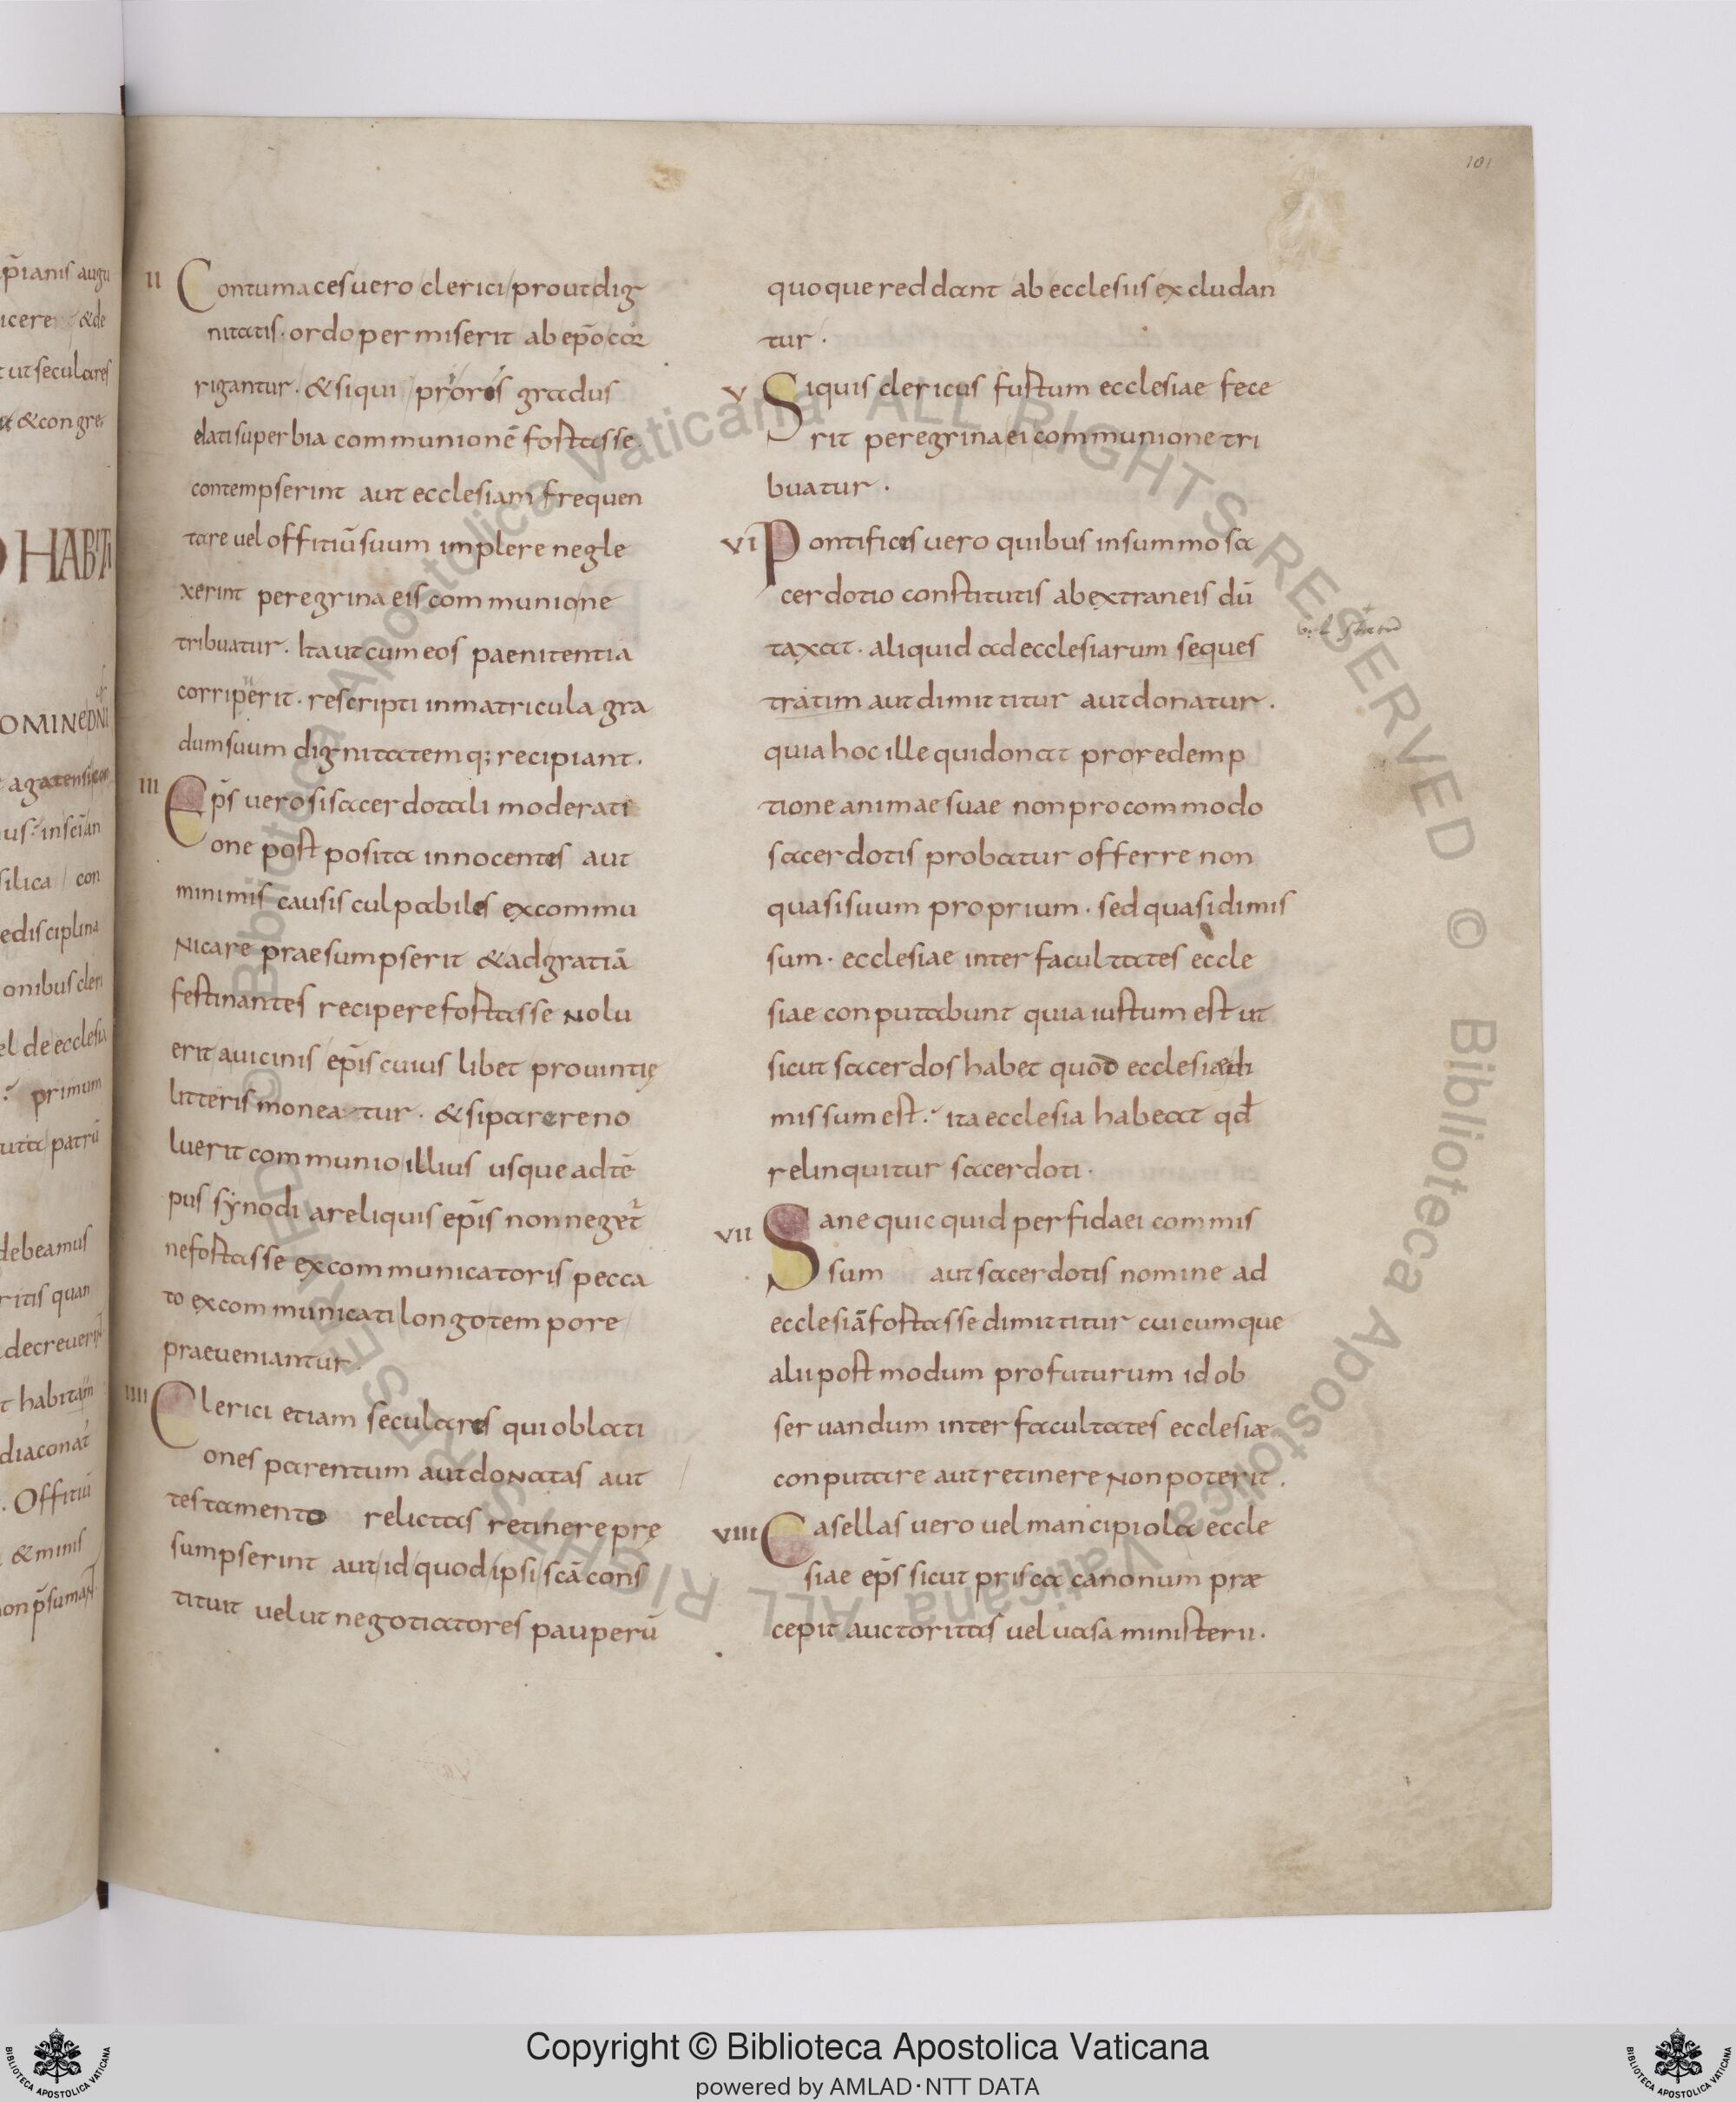 101
p̄ianis augu
icere &de
ut seculares
& congre
O HABITI
OMINEDNI
agatensicon
us: inscian
silica con
edisciplina
onibus cleri
el de ecclesia
primum
uta patrū
debeamus
ritis quan
decreuerin
t habitam
diaconat
. Offitiu
& minis
on p̄suman
II Contumaces uero clerici prout dig
nitatis · ordo permiserit ab ep̄o cor
rigantur · & siqui priores gradus
elati superbia communionē fostasse
contempserint aut ecclesiam frequen
tare uel offitiū suum implere negle
xerint peregrina eis communione
tribuatur · Ita ut cum eos paenitentia
corriperit · rescripti in matricula gra
dum suum dignitatemq; recipiant ·
III Ep̄s uero si sacerdotali moderati
one postposita innocentes aut
minimis causis culpabiles excommu
Nicare praesumpserit & ad gratiā
festinantes recipere fostasse Nolu
erit a uicinis ep̄is cuius libet prouintię
litteris moneatur · & si parere no
luerit communio illius usque ad tē
pus synodi a reliquis ep̄is non neget̄
ne fostasse excommunicatoris pecca
to excommunicati longo tempore
praeueniantur
IIII Clerici etiam seculares qui oblati
ones parentum aut doNatas aut
testamento relictas retinere prę
sumpserint aut id quod ipsi scā cons
tituit uelut negotiatores pauperū
quoque reddant ab ecclesiis excludan
tur ·
V Siquis clericus fustum ecclesiae fece
rit peregrina ei communione tri
buatur ·
VI Pontifices uero quibus in summo sa
cerdotio constitutis ab extraneis dū
taxat · aliquid ad ecclesiarum seques
tratim aut dimittitur aut donatur ·
quia hoc ille qui donat pro redemp
tione animae suae non pro commodo
sacerdotis probatur offerre non
quasi suum proprium · sed quasi dimis
sum · ecclesiae inter facultates eccle
siae conputabunt quia iustum est ut
sicut sacerdos habet quod ecclesiæ di
missum est: ita ecclesia habeat qd̄
relinquitur sacerdoti ·
VII Sane quicquid per fidaei commis
sum aut sacerdotis nomine ad
ecclesiā fostasse dimittitur cuicumque
alii postmodum profuturum id ob
seruandum inter facultates ecclesiæ
conputare aut retinere Non poterit ·
VIII Casellas uero uel mancipiola eccle
siae ep̄s sicut prisca canonum præ
cepit auctoritas uel uasa ministerii ·
© Biblioteca Apostolica Vaticana ALL RIGHTS RESERVED © Biblioteca Apostolica Vaticana ALL RIGHTS RESERVED
Copyright © Biblioteca Apostolica Vaticana
powered by AMLAD·NTT DATA
BIBLIOTECA APOSTOLICA VATICANA
BIBLIOTECA APOSTOLICA VATICANA